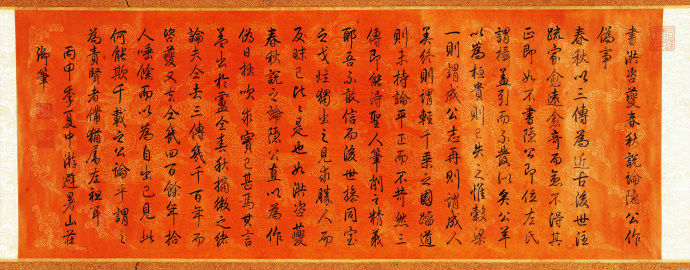 書洪咨夔春秋說論隱公作
偽事
春秋以三傳為近古後世注
疏家愈遠愈棼而無不得其
正即如不書隱公即位左氏
謂攝蓋引而不發似矣公羊
以為桓貴則已失之惟穀梁
一則謂成公志再則謂成人
美終則謂輕千乘之國蹈道
則未持論平正而不苛然三
傳即能得聖人筆削之精義
耶吾不敢信而後世操同室
之戈炫獨出之見求勝人而
反昧己比比是也如洪咨夔
春秋說之論隱公直以為作
偽日拙吹求實已甚焉其言
蓋出於盧仝春秋摘微之緒
論夫仝去三傳幾千百年而
咨夔又去仝幾四百餘年拾
人唾餘而以為自出己見此
何能欺千載之公論乎謂之
為責賢者備猶屬左袒耳
丙申季夏中澣避暑山莊
御筆